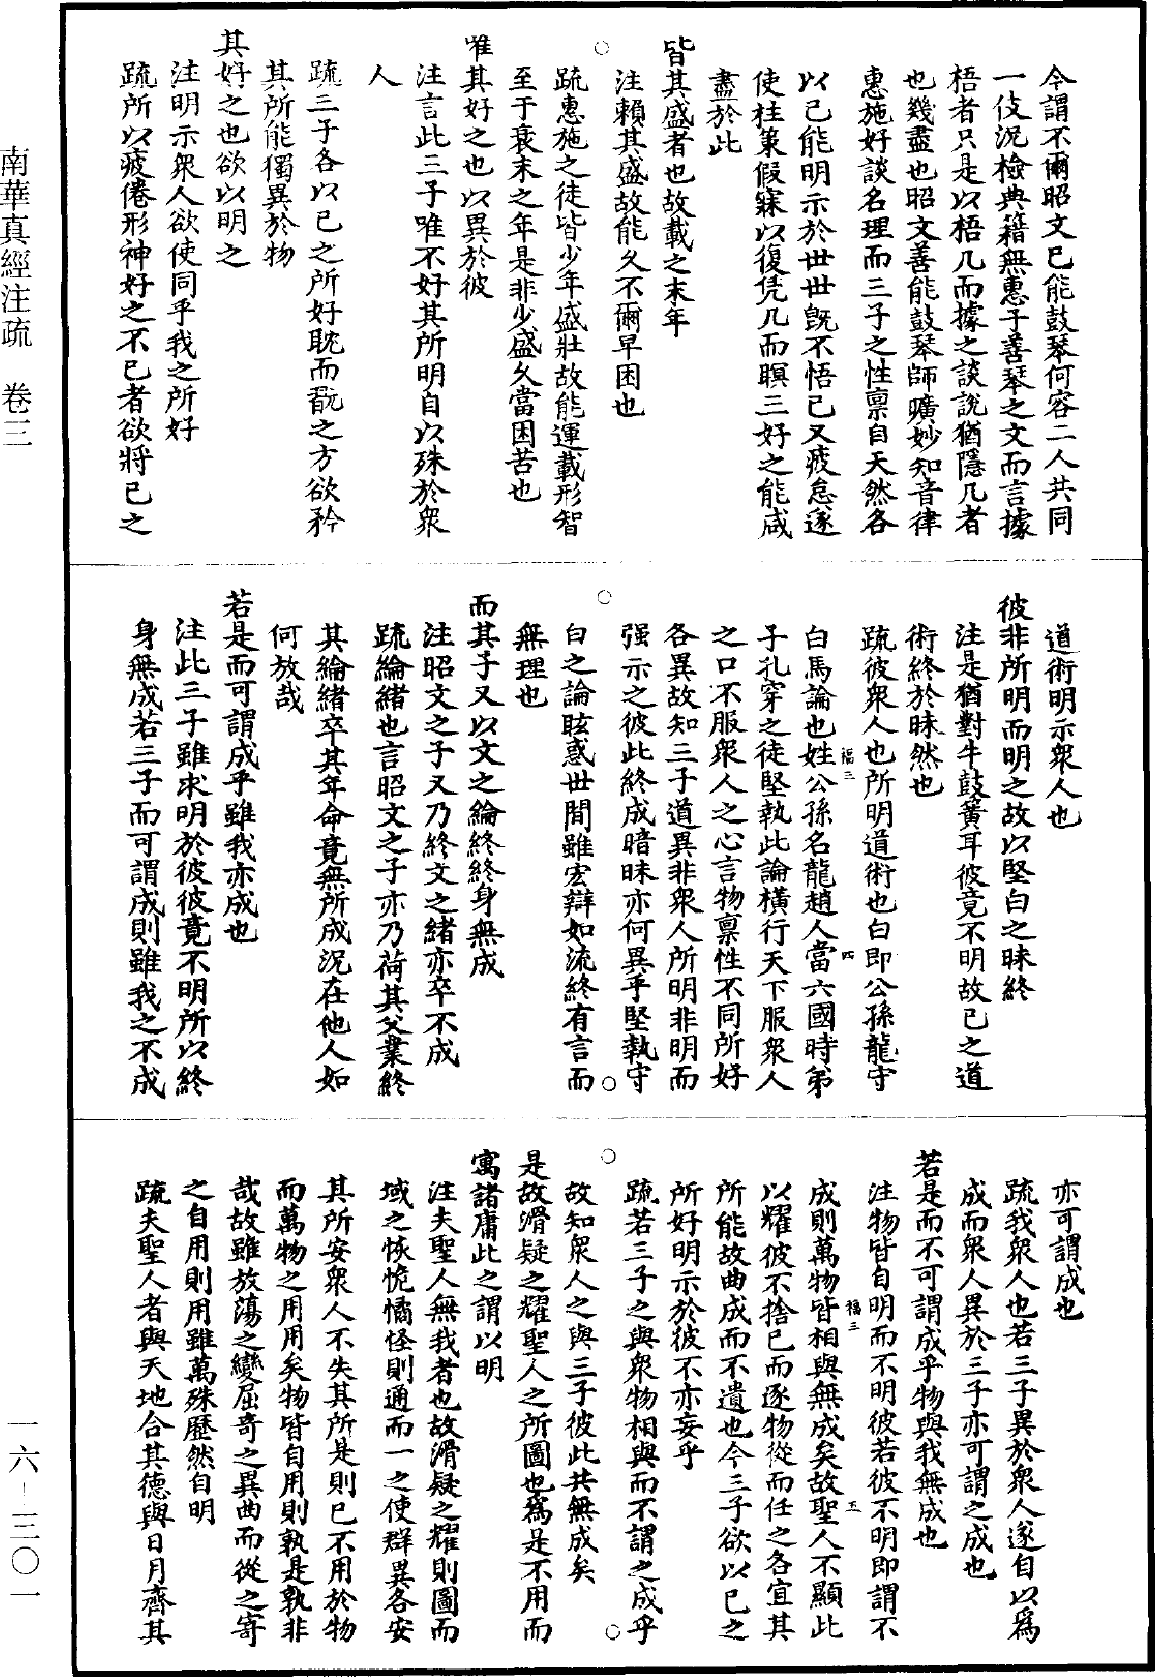 今謂不爾昭文已能鼓琴何容二人共同
一伎況檢典籍無惠子善琴之文而言據
梧者只是以梧几而據之談說猶隱几者
也幾盡也昭文善能鼓琴師曠妙知音律
惠施好談名理而三子之性禀自天然各
以己能明示於世世旣不悟己又疲怠遂
使柱策假寐以復凭几而瞑三好之能咸
盡於此
皆其盛者也故載之末年
注賴其盛故能久不爾早困也
疏惠施之徒皆少年盛壯故能運載形智
至于衰末之年是非少盛久當困苦也
唯其好之也以異於彼
注言此三子唯不好其所明自以殊於衆
人
疏三子各以己之所好耽而翫之方欲矜
其所能獨異於物
其好之也欲以明之
注明示衆人欲使同乎我之所好
疏所以疲倦形神好之不已者欲將己之
道術明示衆人也
彼非所明而明之故以堅白之昧終
注是猶對牛鼓簧耳彼竟不明故己之道
術終於昧然也
疏彼衆人也所明道術也白即公孫龍守
白馬論也姓公孫名龍趙人當六國時弟
子孔穿之徒堅執此論橫行天下服衆人
之口不服衆人之心言物禀性不同所好
各異故知三子道異非衆人所明非明而
强示之彼此終成暗昧亦何異乎堅執守
白之論眩惑世間雖宏辯如流終有言而
無理也
而其子又以文之綸終終身無成
注昭文之子又乃終文之緒亦卒不成
疏綸緒也言昭文之子亦乃荷其父業終
其綸緒卒其年命竟無所成況在他人如
何放哉
若是而可謂成乎雖我亦成也
注此三子雖求明於彼彼竟不明所以終
身無成若三子而可謂成則雖我之不成
亦可謂成也
疏我衆人也若三子異於衆人遂自以爲
成而衆人異於三子亦可謂之成也
若是而不可謂成乎物與我無成也
注物皆自明而不明彼若彼不明即謂不
成則萬物皆相與無成矣故聖人不顯此
以耀彼不捨己而逐物從而任之各宜其
所能故曲成而不遺也今三子欲以己之
所好明示於彼不亦妄乎
疏若三子之與衆物相與而不謂之成乎
故知衆人之與三子彼此共無成矣
是故滑疑之耀聖人之所圖也爲是不用而
寓諸庸此之謂以明
注夫聖人無我者也故滑疑之耀則圖而
域之恢恑憰怪則通而一之使群異各安
其所安衆人不失其所是則己不用於物
而萬物之用用矣物皆自用則孰是孰非
哉故雖放蕩之變屈奇之異曲而從之寄
之自用則用雖萬殊歷然自明
疏夫聖人者與天地合其德與日月齊其
福三
四
福三
五
南華真經注疏 卷三
一六-三〇一